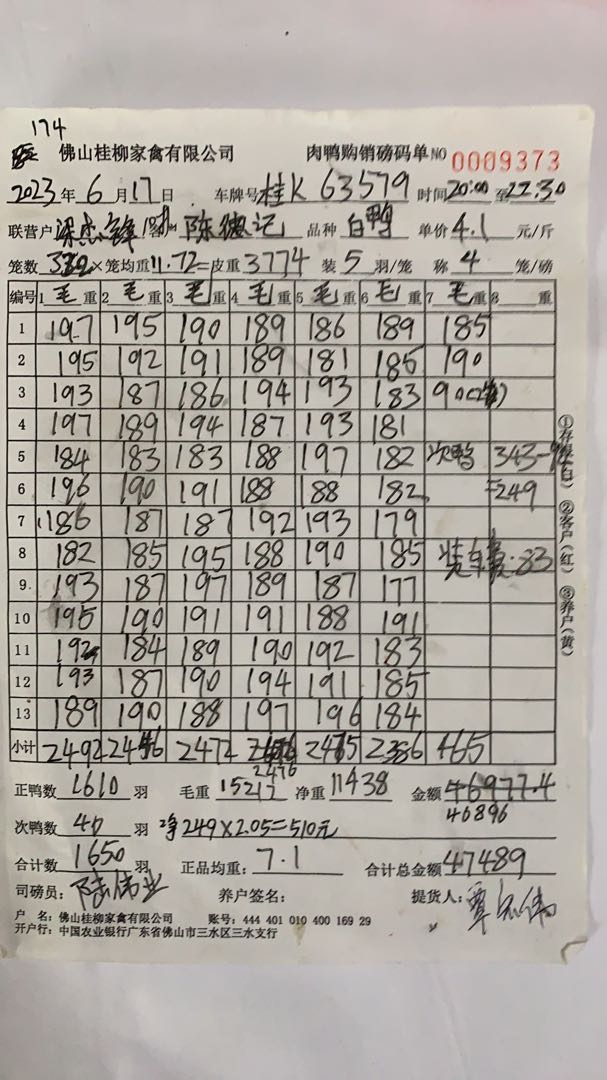 174
佛山桂柳家禽有限公司 肉鸭购销磅码单 NO 0009373
2023年6月17日 车牌号 桂K 63579 时间 20:00 至 22:30
联营户 梁杰锋 客户 陈德记 品种 白鸭 单价 4.1 元/斤
笼数 322 ×笼均重 11.72 =皮重 3774 装 5 羽/笼 称 4 笼/磅
编号 1 毛重 2 毛重 3 毛重 4 毛重 5 毛重 6 毛重 7 毛重 8 重
1 197 195 190 189 186 189 185
2 195 192 191 189 181 185 190
3 193 187 186 194 193 183 90(2笼)
4 197 189 194 187 193 181
5 184 183 183 188 197 182 次鸭 343-94
6 196 190 191 188 188 182 =249
7 186 187 187 192 193 179
8 182 185 195 188 190 185 装车费:83
9 193 187 197 189 187 177
10 195 190 191 191 188 191
11 192 184 189 190 192 183
12 193 187 190 194 191 185
13 189 190 188 197 196 184
小计 2492 2446 2472 2476 2465 2386 465
2476
正鸭数 1610 羽 毛重 15212 净重 11438 金额 46977.4
46896
次鸭数 40 羽 净249×2.05=510元
合计数 1650 羽 正品均重: 7.1 合计总金额 47489
司磅员: 陆伟业 养户签名: 提货人:
户 名: 佛山桂柳家禽有限公司 账号: 444 401 010 400 169 29
开户行: 中国农业银行广东省佛山市三水区三水支行
①存根(白) ②客户(红) ③养户(黄)